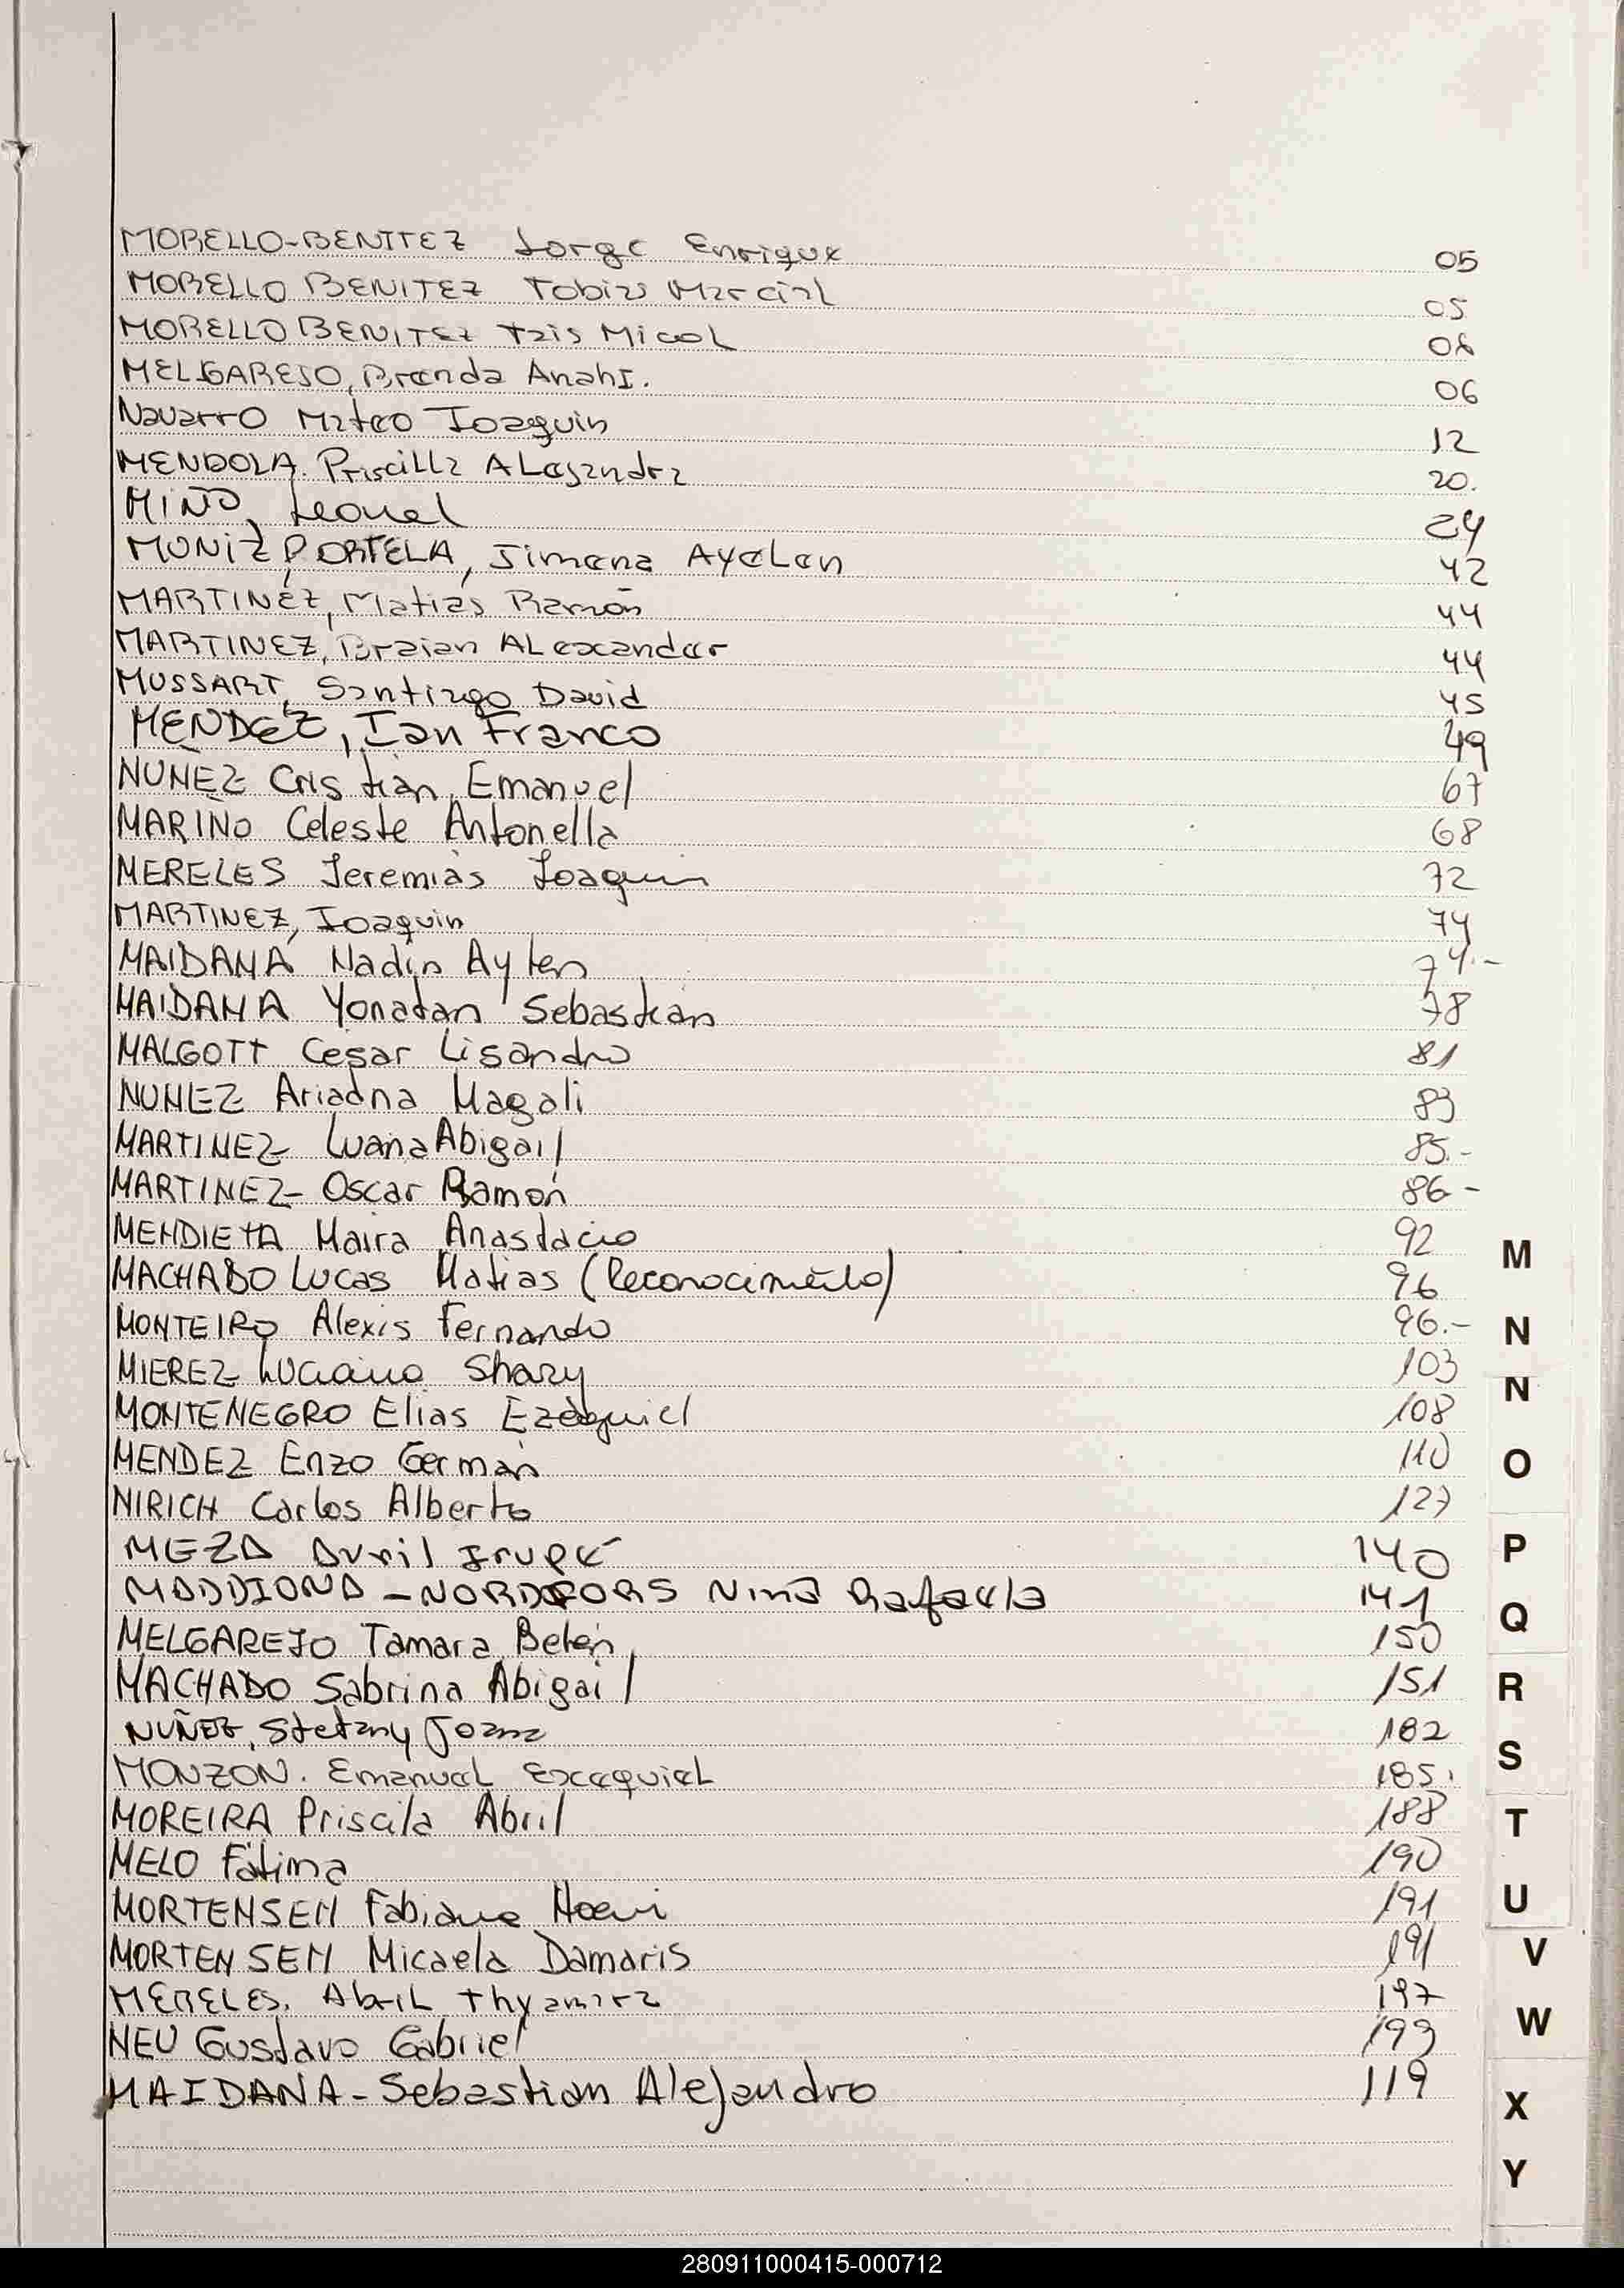 MORELLO-BENITEZ Jorge Enrique 05
MORELLO BENITEZ Tobias Marcial 05
MORELLO BENITEZ Tais Micol 06
MELGAREJO, Brenda Anahi. 06
Navarro Mateo Joaquin 12
MENDOLA. Priscilla Alejandra 20.
MIÑO, Leonel 24
MUNIZ PORTELA, Jimena Ayelen 42
MARTINEZ, Matias Ramón 44
MARTINEZ, Braian Alexander 44
MUSSART, Santiago David 45
MENDEZ, Ian Franco 49
NUÑEZ Cristian Emanuel 67
MARIÑO Celeste Antonella 68
MERELES Jeremias Joaquin 72
MARTINEZ, Joaquin 74
MAIDANA Nadin Aylen 74.-
MAIDANA Yonatan Sebastián 78
MALGOTT Cesar Lisandro 81
NUNEZ Ariadna Magali 83
MARTINEZ Luana Abigail 85.-
MARTINEZ- Oscar Ramón 86-
MENDIETA Maira Anastacio 92
MACHADO Lucas Matias (Reconocimiento) 96
MONTEIRO Alexis Fernando 96.-
MIEREZ Luciana Shary 103
MONTENEGRO Elias Ezequiel 108
MENDEZ Enzo Germán 110
NIRICH Carlos Alberto 127
MEZA Avril Irupé 140
MADDIONA - NORDFORS Nina Rafaela 141
MELGAREJO Tamara Belén 150
MACHADO Sabrina Abigail 151
NUÑEZ, Stefany Joana 182
MONZON. Emanuel Exequiel 185.
MOREIRA Priscila Abril 188
MELO Fátima 190
MORTENSEN Fabiana Noemi 191
MORTENSEN Micaela Damaris 191
MERELES. Abril Thyamara 197
NEU Gustavo Gabriel 199
MAIDANA - Sebastian Alejandro 119
M
N
N
O
P
Q
R
S
T
U
V
W
X
Y
280911000415-000712